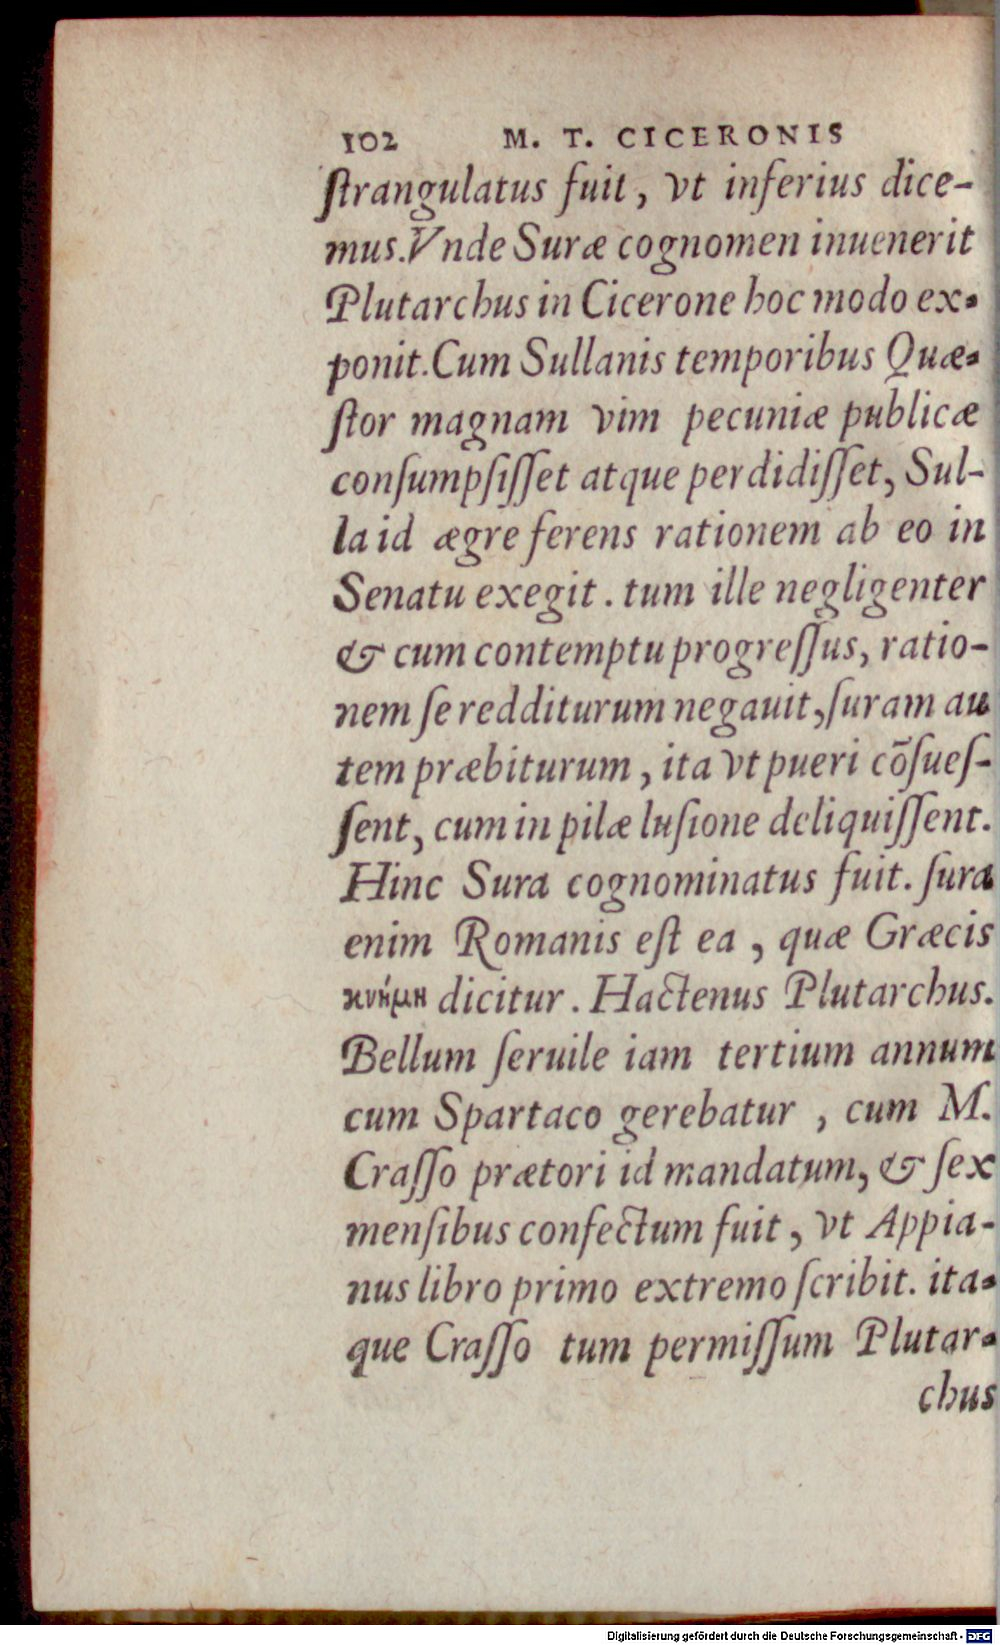 102 M. T. CICERONIS
ſtrangulatus fuit, vt inferius dice-
mus. Vnde Suræ cognomen inuenerit
Plutarchus in Cicerone hoc modo ex-
ponit. Cum Sullanis temporibus Quæ-
ſtor magnam vim pecuniæ publicæ
conſumpſiſſet atque perdidiſſet, Sul-
la id ægre ferens rationem ab eo in
Senatu exegit. tum ille negligenter
& cum contemptu progreſſus, ratio-
nem ſe redditurum negauit, ſuram au
tem præbiturum, ita vt pueri cõſueſ-
ſent, cum in pilæ luſione deliquiſſent.
Hinc Sura cognominatus fuit. ſura
enim Romanis eſt ea, quæ Græcis
κνήμη dicitur. Hactenus Plutarchus.
Bellum ſeruile iam tertium annum
cum Spartaco gerebatur, cum M.
Craſſo prætori id mandatum, & ſex
menſibus confectum fuit, vt Appia-
nus libro primo extremo ſcribit. ita-
que Craſſo tum permiſſum Plutar-
chus
Digitalisierung gefördert durch die Deutsche Forschungsgemeinschaft - DFG